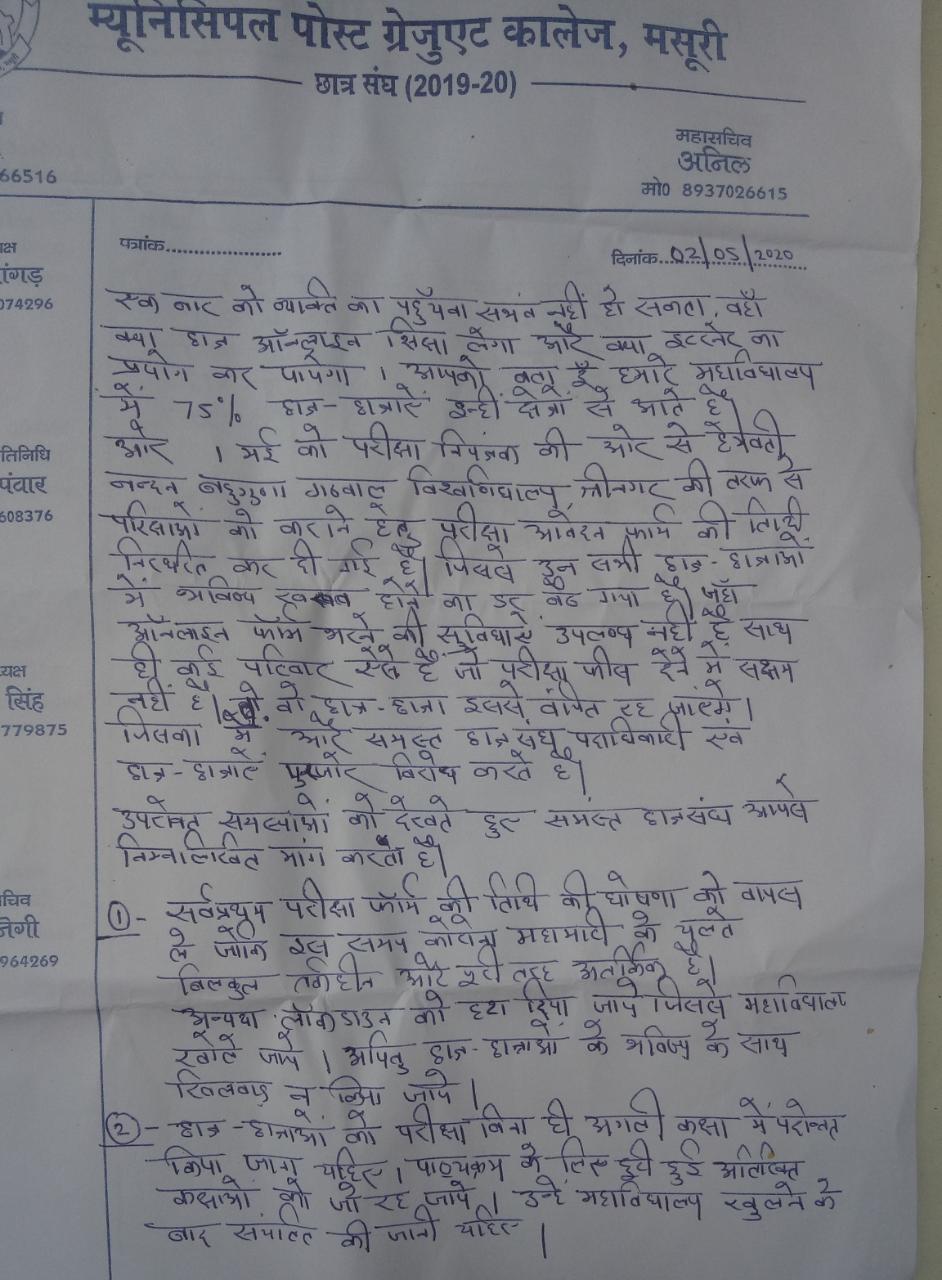 म्यूनिसिपल पोस्ट ग्रेजुएट कालेज, मसूरी
छात्र संघ (2019-20)
महासचिव
अनिल
मो0 8937026615
66516
पत्रांक....................
दिनांक...02/05/2020
074296
तिनिधि
पंवार
608376
सिंह
779875
चिव
नेगी
964269
एक बार को व्यक्ति का पहुँचना संभव नहीं हो सकता, वहाँ
क्या छात्र ऑनलाइन शिक्षा लेगा और क्या इंटरनेट का
प्रयोग कर पायेगा । आपको बता दूँ हमारे महाविद्यालय
में 75% छात्र-छात्राऐं इन्हीं क्षेत्रों से आते है।
और 1 मई को परीक्षा नियंत्रक की ओर से हेमवती
नन्दन बहुगुणा गढवाल विश्वविद्यालय, श्रीनगर की तरफ से
परिक्षाओं को कराने हेतु परीक्षा आवेदन फार्म की तिथि
निर्धारित कर दी गई है। जिससे इन सभी छात्र-छात्राओं
में भविष्य होने का डर बढ गया है, जहाँ
ऑनलाइन फॉर्म भरने की सुविधाऐं उपलब्ध नहीं है साथ
ही कई परिवार ऐसे है जो परीक्षा फीस देने में सक्षम
नहीं है। वो छात्र-छात्रा इससे वंचित रह जाएंगे।
जिसका मैं और समस्त छात्र संघ पदाधिकारी एवं
छात्र-छात्राऐं पुरजोर विरोध करते है।
उपरोक्त समस्याओं को देखते हुए समस्त छात्रसंघ आपसे
निम्नलिखित मांग करता है।
① - सर्वप्रथम परीक्षा फॉर्म की तिथि की घोषणा को वापस
ले जोकि इस समय कोरोना महामारी के चलते
बिलकुल तर्कहीन और पूरी तरह अतार्किक है।
अन्यथा लॉकडाउन को हटा दिया जाये जिससे महाविद्यालय
खोले जाये । अपितु छात्र-छात्राओं के भविष्य के साथ
खिलवाड़ न किया जाये ।
② - छात्र-छात्राओं को परीक्षा बिना ही अगली कक्षा में परोन्नत
किया जाना चाहिए । पाठ्यक्रम के लिए छुटी हुई अतिरिक्त
कक्षाओं को जो रह जाये । उन्हें महाविद्यालय खुलने के
बाद की जानी चाहिए ।